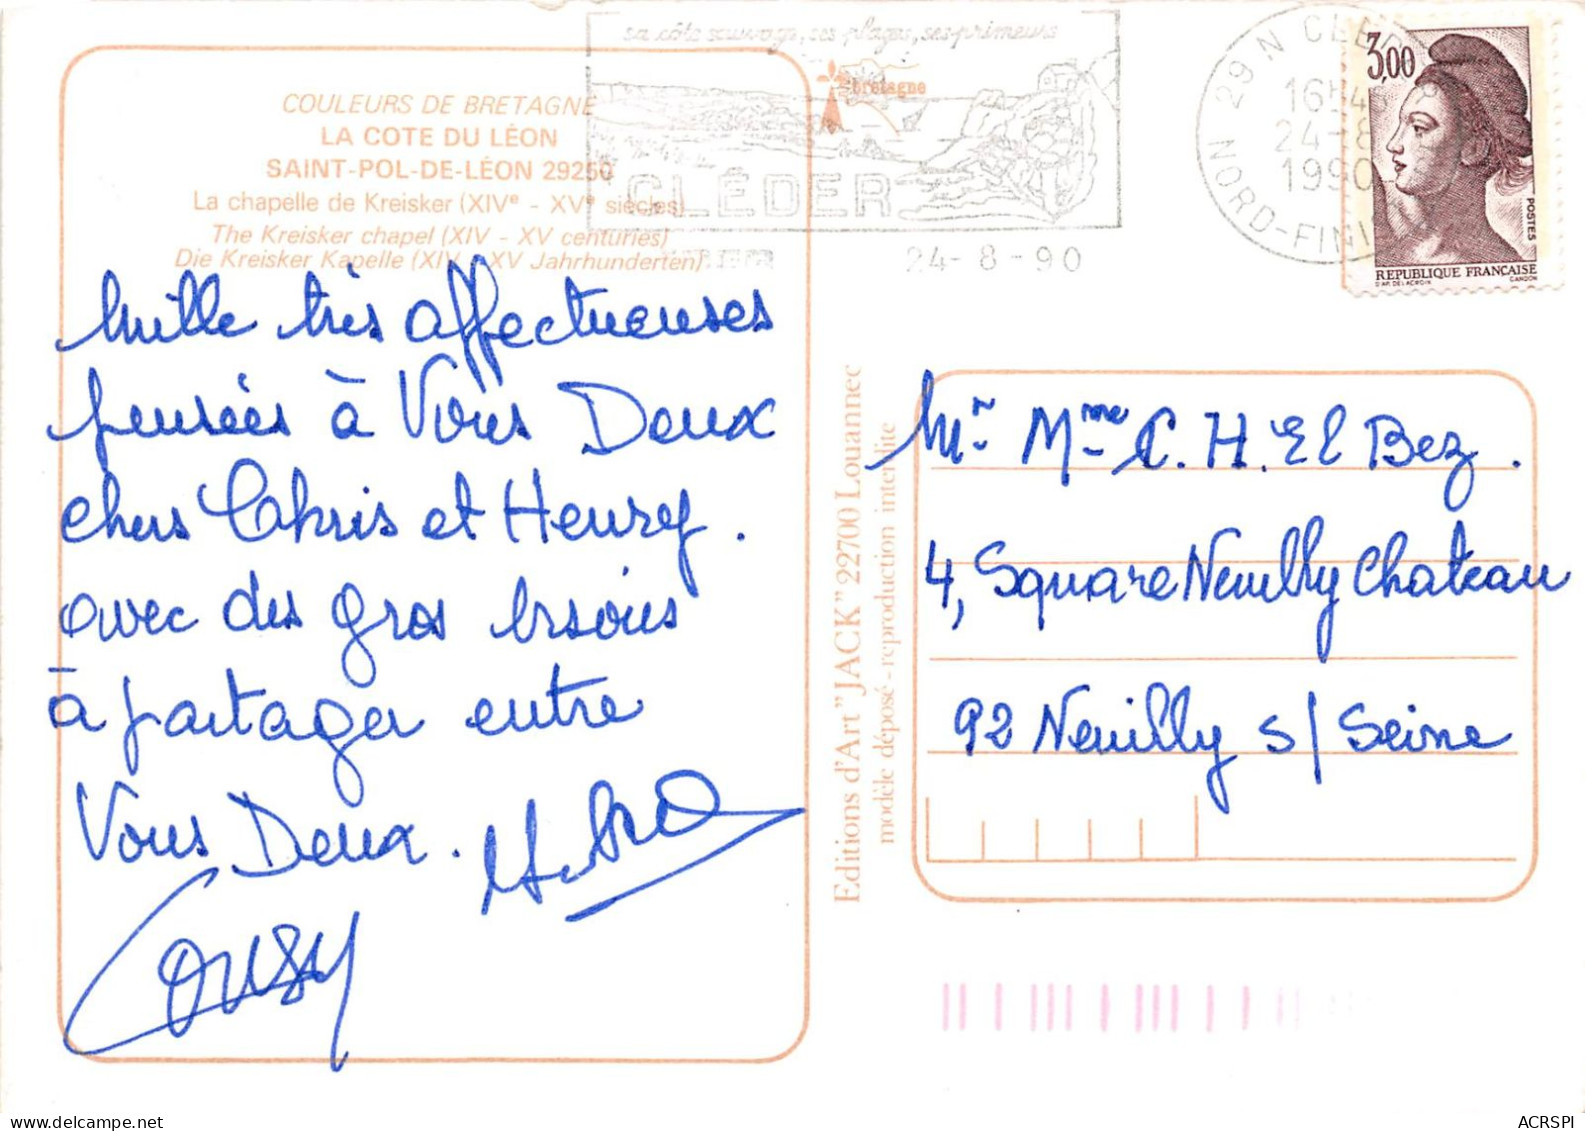 COULEURS DE BRETAGNE
LA COTE DU LÉON
SAINT-POL-DE-LÉON 29250
La chapelle de Kreisker (XIVe - XVe siècles)
The Kreisker chapel (XIV - XV centuries)
Die Kreisker Kapelle (XIV - XV Jahrhunderten)
Mille très affectueuses
pensées à Vous Deux
chers Chris et Henry.
avec des gros bisous
à partager entre
Vous Deux.
sa côte sauvage, ses plages, ses primeurs
bretagne
CLÉDER
24-8-90
29 N CLEDER
16H4
24-8
1990
NORD-FINI
3,00
POSTES
REPUBLIQUE FRANCAISE
D'AP. DELACROIX GANDON
Editions d'Art "JACK" 22700 Louannec
modèle déposé - reproduction interdite
Mr Mme C. H. El Bez.
4, Square Neuilly Chateau
92 Neuilly s/ Seine
ACRSPI